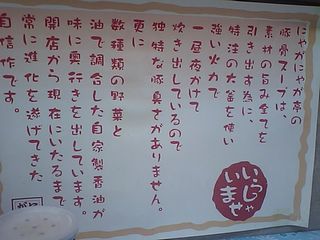 にゃがにゃが亭の
豚骨スープは、
素材の旨み全てを
引き出す為に、
特注の大釜を使い
強い火力で
一昼夜かけて
炊き出しているので
独特な豚臭さがありません。
更に
数種類の野菜と
油で調合した自家製香油が
味に奥行きを出しています。
開店から現在にいたるまで
常に進化を遂げてきた
自信作です。
いらっしゃ
いませ